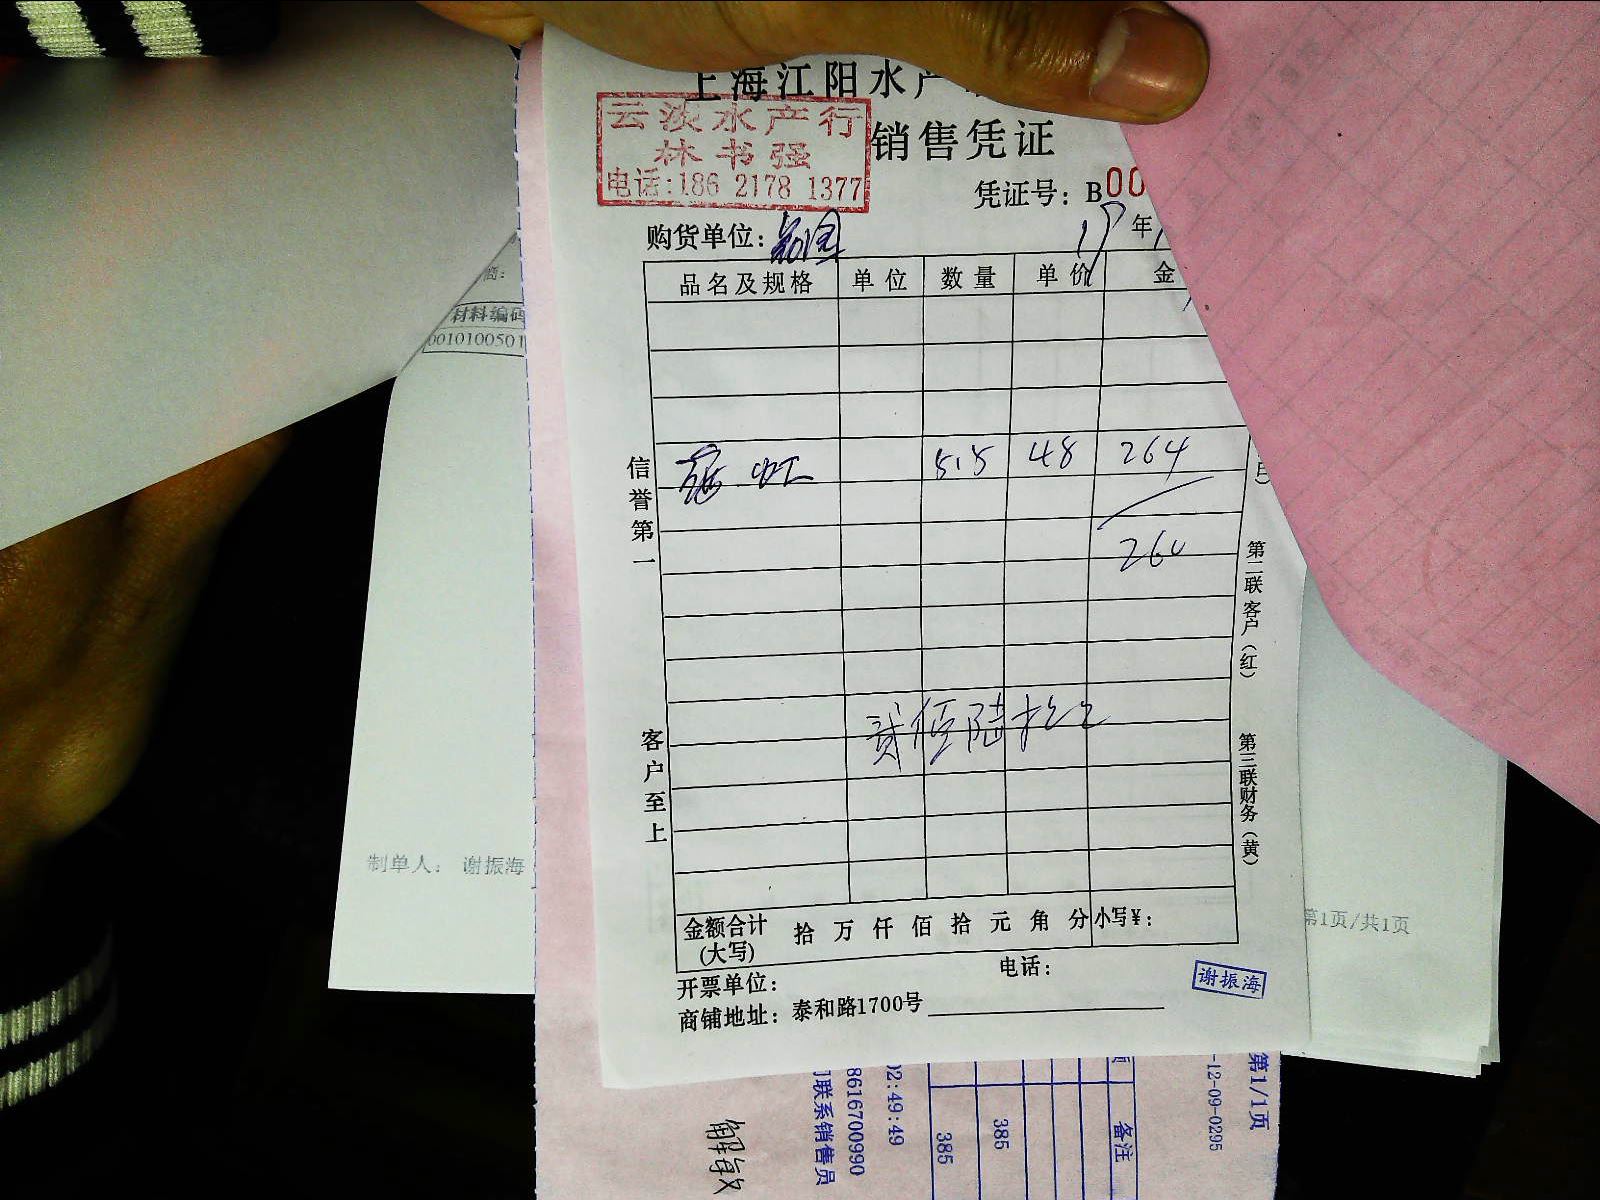 上海江阳水产
云淡水产行
林书强
电话:186 2178 1377
销售凭证
凭证号：B00
购货单位：
17年
品名及规格 单位 数量 单价 金
5.5 48 264
260
贰佰陆拾元
信誉第一
客户至上
第二联客户（红）
第三联财务（黄）
金额合计（大写） 拾 万 仟 佰 拾 元 角 分 小写¥：
开票单位： 电话：
商铺地址：泰和路1700号
谢振海
商：
材料编码
0010100501
制单人： 谢振海
第1页/共1页
第1/1页
-12-09-0295
备注
385
385
02:49:49
8616700990
联系销售员
解敏